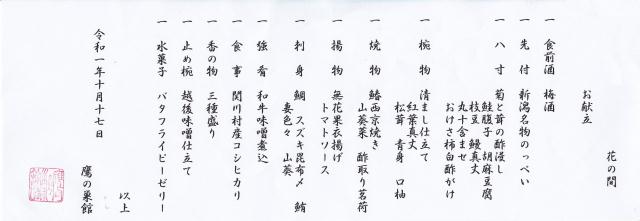 花の間
お献立
一 食前酒 梅酒
一 先付 新潟名物のっぺい
一 八寸 菊と茸の酢浸し
鮭腹子 胡麻豆腐
枝豆 鰻真丈
丸十含ませ
おけさ柿白酢がけ
一 椀物 清まし仕立て
紅葉真丈
松茸 青身 口柚
一 焼物 鰆西京焼き
山葵菜 酢取り茗荷
一 揚物 無花果衣揚げ
トマトソース
一 刺身 鯛 スズキ昆布〆 鮪
妻色々 山葵
一 強肴 和牛味噌煮込
一 食事 関川村産コシヒカリ
一 香の物 三種盛り
一 止め椀 越後味噌仕立て
一 水菓子 バタフライピーゼリー
以上
令和一年十月十七日
鷹の巣館